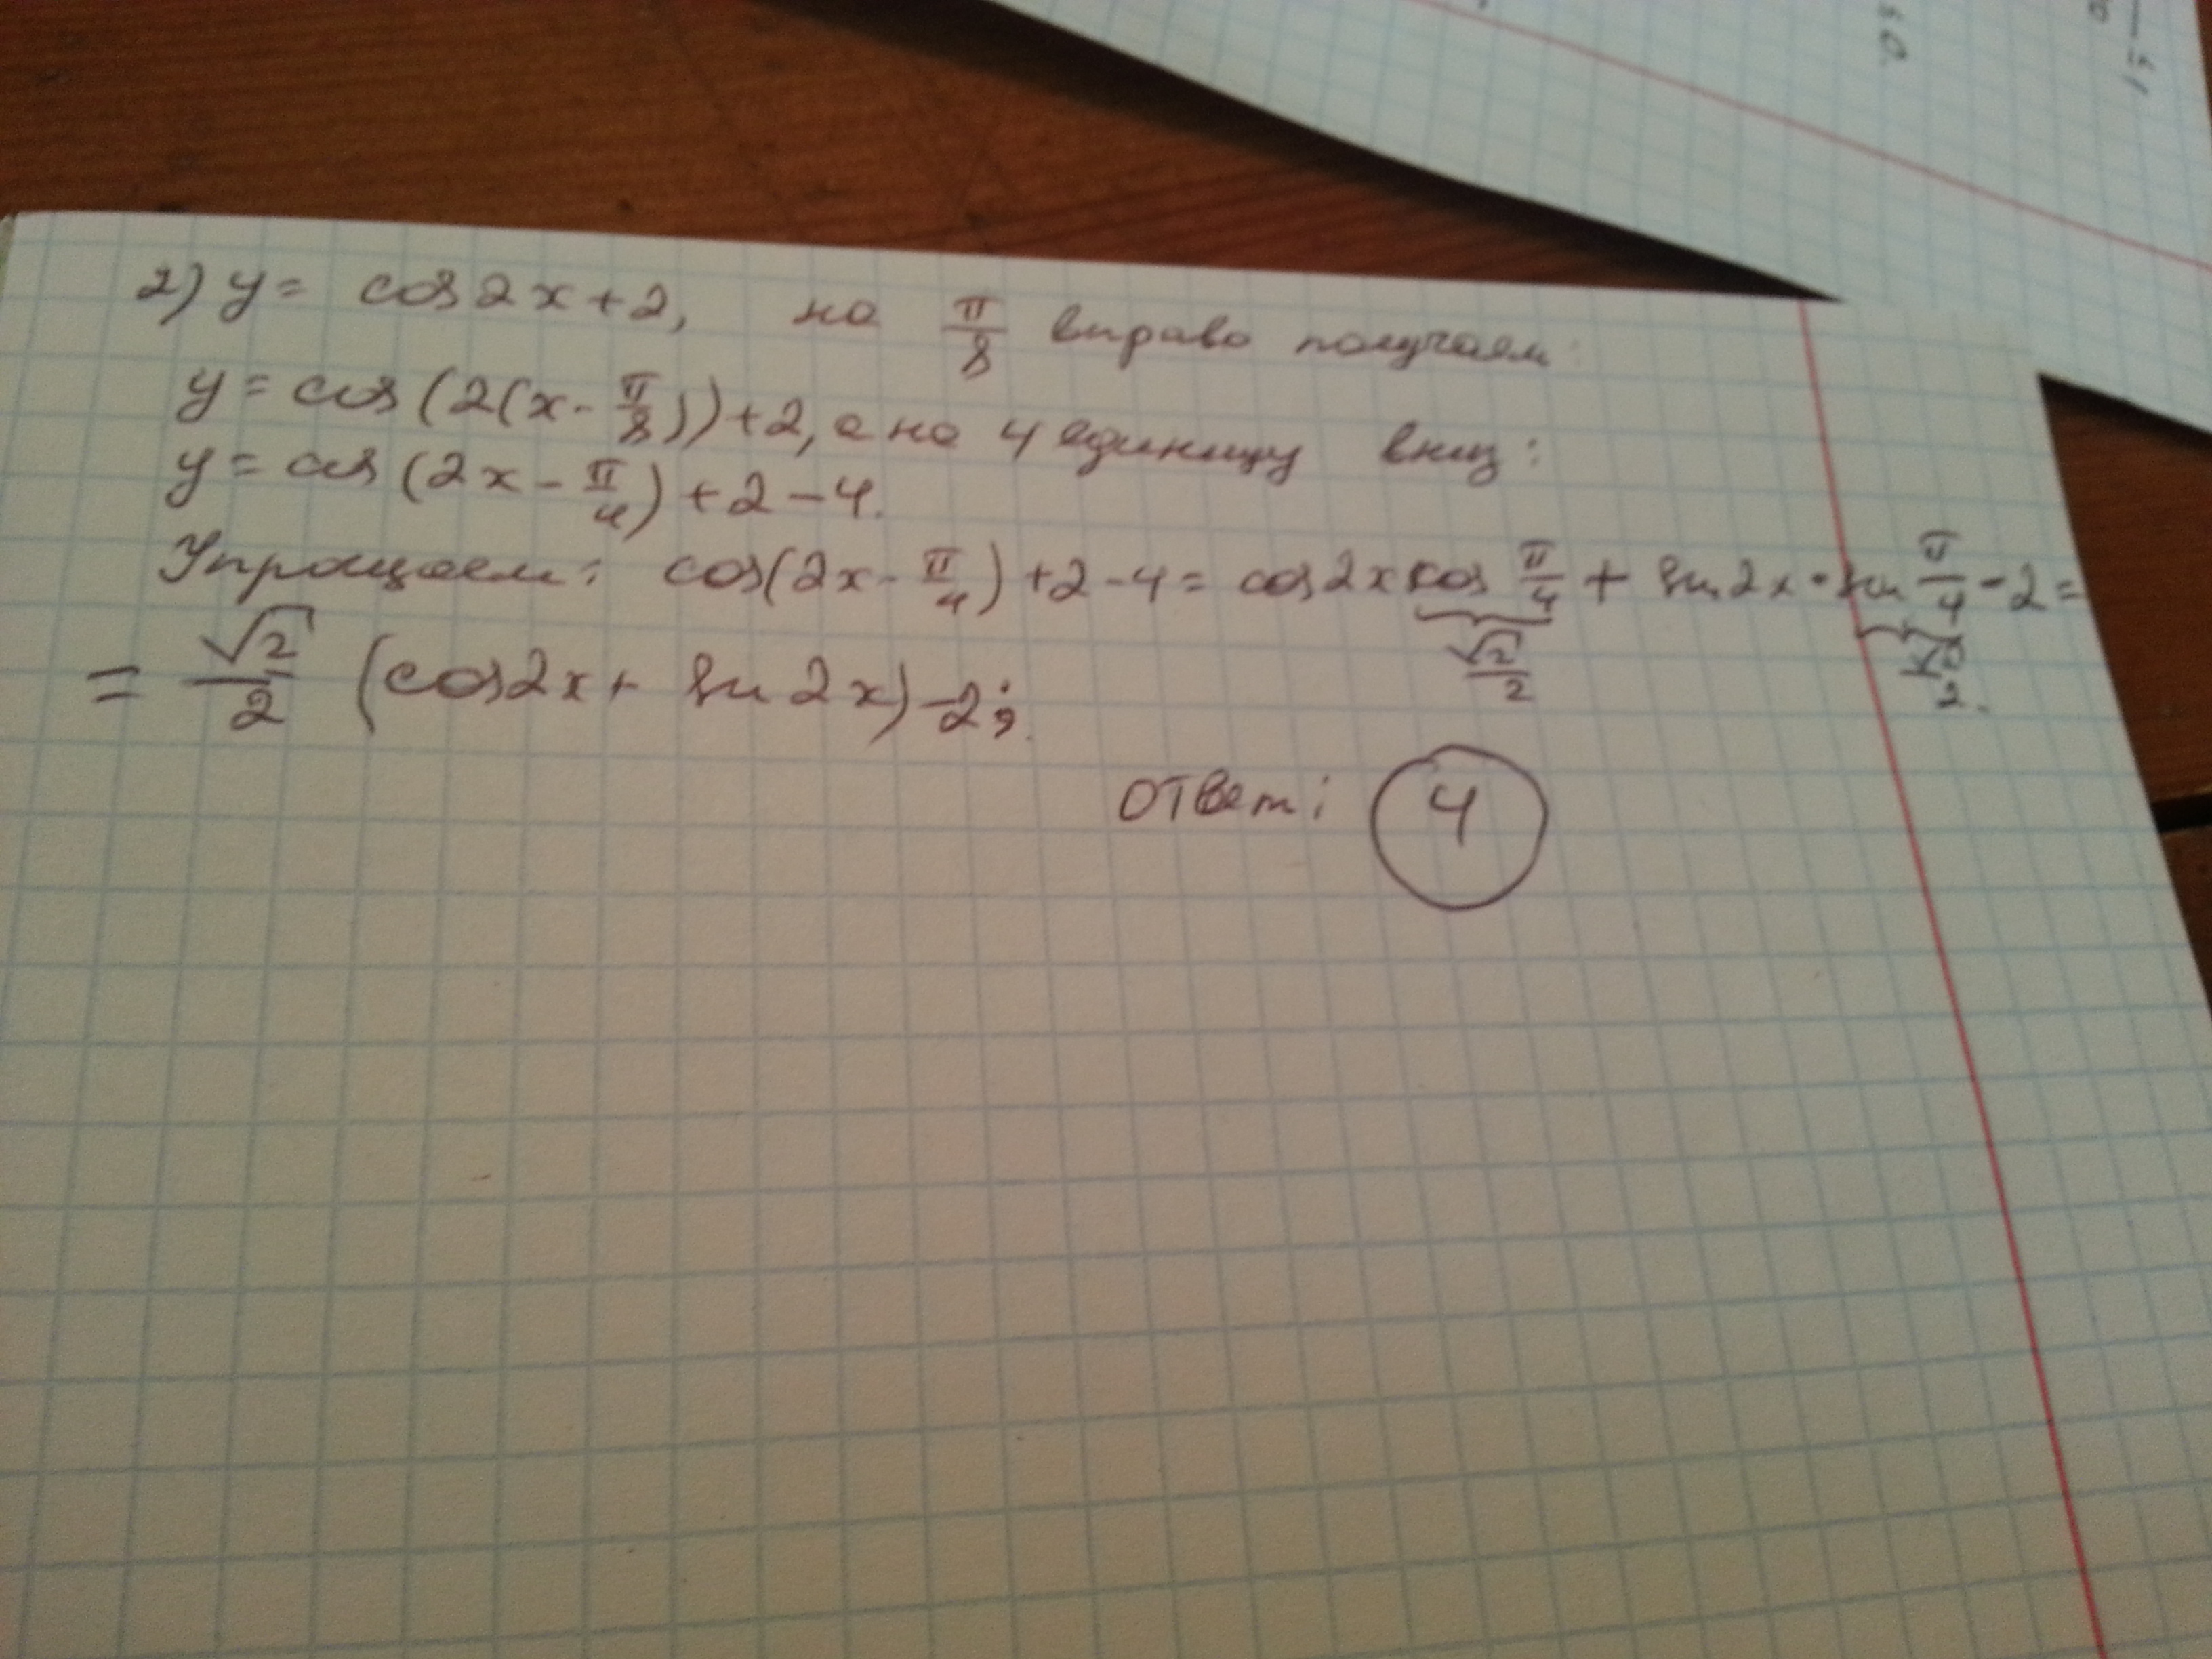 2) y = cos 2x + 2, на π/8 вправо получаем:
y = cos (2(x - π/8)) + 2, а на 4 единицу вниз:
y = cos (2x - π/4) + 2 - 4.
Упрощаем: cos(2x - π/4) + 2 - 4 = cos 2x cos π/4 + sin 2x · sin π/4 - 2 =
√2/2 √2/2
= √2/2 (cos 2x + sin 2x) - 2;
Ответ: 4